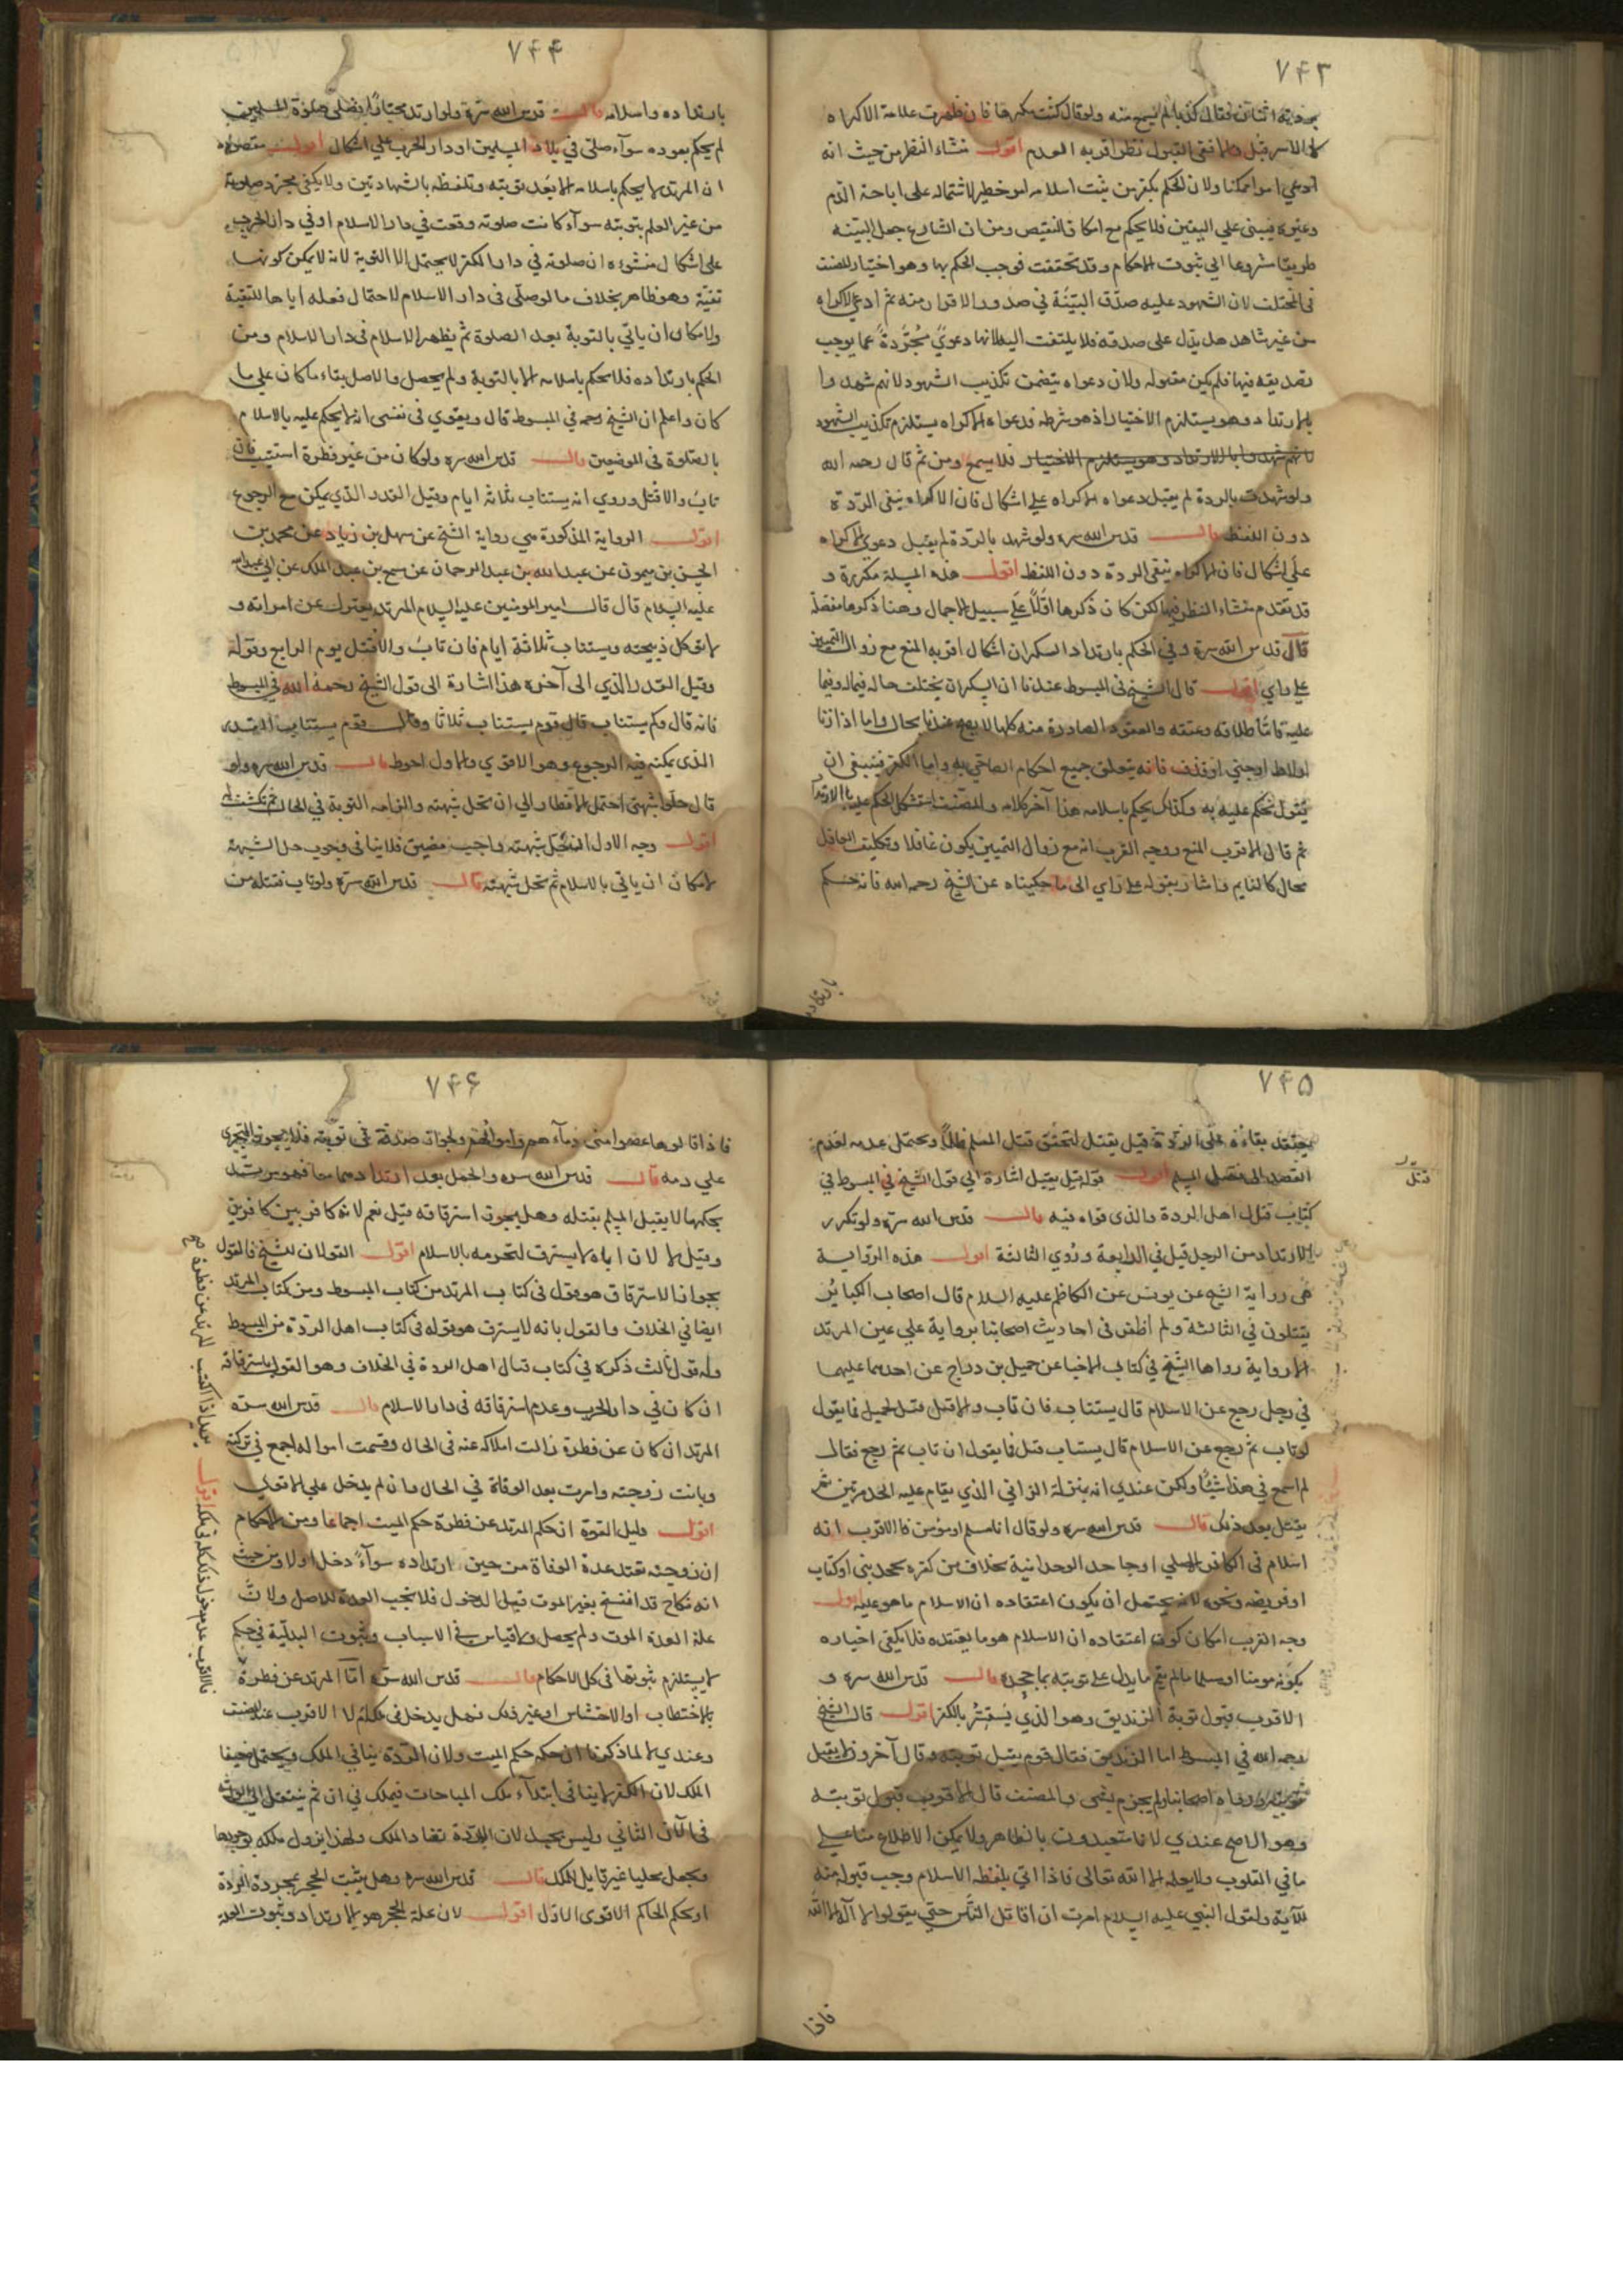 ٧٤٣
بردته اثنان فقال كذبا لم يسمع منه ولو قال كنت مكرها فان ظهرت علامة الاكراه
كالاسر قبل والا ففي القبول نظر اقربه العدم اقول منشاء النظر من حيث انه
ادعى امرا ممكنا ولان الحكم بكفر من ثبت اسلامه امر خطير لاشتماله على اباحة الدم
وغيره فيبنى على اليقين فلا يحكم مع امكان النقيض ومن ان الشارع جعل البينه
طريقا مشروعا الى ثبوت الاحكام وقد تحققت فوجب الحكم بها وهو اختيار المصنف
فى المختلف لان الشهود عليه صدّق البيّنة في صدور الاقرار منه ثم ادعى الاكراه
من غير شاهد حال يدل على صدقه فلا يلتفت اليه لانها دعوىً مجرّدةً عما يوجب
تصديقه فيها فلم يكن مقبوله ولان دعواه يتضمن تكذيب الشهود لانهم شهدوا
بالارتداد وهو يستلزم الاختيار اذ هو شرطه فدعواه الاكراه يستلزم تكذيب الشهود
فلا يسمع ومن ثم قال رحمه الله
ولو شهدت بالردة لم يقبل دعواه الاكراه على اشكال فان الاكراه ينفى الردّة
دون اللفظ قال قدس الله سره ولو شهد بالردّة لم يقبل دعوى الاكراه
على اشكال فان الاكراه ينفى الردة دون اللفظ اقول هذه المسئلة مكررة و
قد تقدم منشاء النظر فيها لكن كان ذكرها اوّلاً على سبيل الاجمال وهنا ذكرها مفصلة
قال قدس الله سره وفي الحكم بارتداد السكران اشكال اقربه المنع مع زوال التمييز
على راي اقول قال الشيخ فى المبسوط عندنا ان السكران يختلف حاله فيما له وفيما
عليه فامّا طلاقه وعتقه والعقود الصادرة منه كلها لا يصح عندنا بحال واما اذا زنا
اولاط اوجنى اوقذف فانه يتعلق جميع احكام الصاحي به واما الكفر فينبغى ان
نقول نحكم عليه به وكذلك يحكم باسلامه هذا آخر كلامه والمصنف استشكل الحكم عليه بالارتداد
ثم قال الاقرب المنع ووجه القرب انه مع زوال التمييز يكون غافلا وتكليف الغافل
محال كالنايم واشار بقوله على راي الى ما حكيناه عن الشيخ رحمه الله فانه حكم
بارتداده
٧٤٤
بارتداده واسلامه قال قدس الله سرّه ولو ارتد مختارًا فصلى صلوة المسلمين
لم يحكم بعوده سوآء صلى في بلاد المسلمين او دار الحرب على اشكال اقول مقصوده
ان المرتد لا يحكم باسلامه الا بعد توبته وتلفظه بالشهادتين ولا يكفى مجرد صلوته
من غير العلم بتوبته سوآء كانت صلوته وقعت في دار الاسلام او في دار الحرب
على اشكال منشؤه ان صلوته في دار الكفر لا يحتمل الا التوبة لانه لا يمكن كونها
تقيّة وهو ظاهر بخلاف ما لو صلّى فى دار الاسلام لاحتمال فعله اياها للتقية
ولامكان ان ياتي بالتوبة بعد الصلوة ثم يظهر الاسلام فى دار الاسلام ومن
الحكم بارتداده فلا يحكم باسلامه الا بالتوبة ولم يحصل والاصل بقاء ما كان على ما
كان واعلم ان الشيخ رحمه في المبسوط قال ويقوي فى نفسى انه لا يحكم عليه بالاسلام
بالصلوة فى الموضعين قال قدس الله سره ولو كان من غير فطرة استتيب فان
تاب والا قتل وروي انه يستتاب ثلاثة ايام وقيل القدر الذي يمكن مع الرجوع
اقول الرواية المذكورة هي رواية الشيخ عن سهل بن زياد عن محمد بن
الحسن بن ميمون عن عبدالله بن عبد الرحمان عن مسمع بن عبد الملك عن ابي عبدالله
عليه السلام قال قال امير المومنين عليه السلام المرتد يعتزل عن امراته و
لا توكل ذبيحته ويستتاب ثلاثة ايام فان تاب والا قتل يوم الرابع وقوله
وقيل القدر الذي الى آخره هذا اشارة الى قول الشيخ رحمه الله في المبسوط
فانه قال وكم يستتاب قال قوم يستتاب ثلاثا وقال قوم يستتاب القدر
الذى يمكنه فيه الرجوع وهو الاقوي والاول احوط قال قدس الله سره ولو
قال حلّوا شبهتى احتمل الانظار الى ان تحل شبهته والزامه التوبة في الحال ثم تكشف له
اقول وجه الاول ان حل شبهته واجب مضيق فلا ينافى وجوب حل الشبهة
لامكان ان ياتي بالاسلام ثم تحل شبهته قال قدس الله سرّه ولو تاب فقتله من
٧٤٥
يعتقد بقاءه على الردّة قيل يقتل لتحقق قتل المسلم ظلمًا ويحتمل عدمه لعدم
القصد الى قتل المسلم اقول قوله قيل يقتل اشارة الى قول الشيخ في المبسوط في
كتاب قتال اهل الردة والذى قواه فيه قال قدس الله سرّه ولو تكرر
الارتداد من الرجل قتل في الرابعة وروي الثالثة اقول هذه الرواية
هى رواية الشيخ عن يونس عن الكاظم عليه السلام قال اصحاب الكبائر
يقتلون في الثالثة ولم اظفر فى احاديث اصحابنا برواية على عين المرتد
الا رواية رواها الشيخ في كتابى الاخبار عن جميل بن دراج عن احدهما عليهما
في رجل رجع عن الاسلام قال يستتاب فان تاب والا قتل قيل لجميل فما يقول
لو تاب ثم رجع عن الاسلام قال يستتاب قيل فما يقول ان تاب ثم رجع فقال
لم اسمع في هذا شيئًا ولكن عندي انه بمنزلة الزاني الذي يقام عليه الحد مرتين ثم
يقتل بعد ذلك قال قدس الله سره ولو قال انا مسلم او مؤمن فالاقرب انه
اسلام فى الكافر الاصلي او جاحد الوحدانية بخلاف من كفره بجحد نبى او كتاب
او فريضه ونحوه لانه يحتمل ان يكون اعتقاده ان الاسلام ما هو عليه اقول
وجه القرب امكان كون اعتقاده ان الاسلام هو ما يعتقده فلا يكفى اخباره
بكونه مومنا او مسلما مالم يقم ما يدل على توبته بما جحده قال قدس الله سره و
الاقرب قبول توبة الزنديق وهو الذي يستتر بالكفر اقول قال الشيخ
رحمه الله في المبسوط اما الزنديق فقال قوم يقبل توبته وقال آخرون لا يقبل
رواه اصحابنا ولم يجزم بشى والمصنف قال الاقرب قبول توبته
وهو الاصح عندي لانا متعبدون بالظاهر ولا يمكن الاطلاع منا على
ما في القلوب ولا يعلمه الا الله تعالى فاذا اتى بلفظ الاسلام وجب قبوله منه
للآية ولقول النبي عليه السلام امرت ان اقاتل الناس حتى يقولوا لا آله الا الله
قتل
فاذا
٧٤۶
فاذا قالوها عصموا منى دمآءهم واموالهم ولجواز صدقه في توبته فلا يجوز التجرى
علي دمه قال قدس الله سره والحمل بعد ارتدادهما معا فهو مرتد
بحكمها لا يقبل المسلم بقتله وهل يجوز استرقاقه قيل نعم لانه كافر بين كافرين
وقيل لا لان اباه لا يسترق لتحرمه بالاسلام اقول القولان للشيخ فالقول
بجواز الاسترقاق هو قوله فى كتاب المرتد من كتاب المبسوط ومن كتاب المرتد
ايضا في الخلاف والقول بانه لا يسترق هو قوله فى كتاب اهل الردّة من المبسوط
وله قول ثالث ذكره في كتاب قتال اهل الردة في الخلاف وهو القول باسترقاقه
ان كان في دار الحرب وعدم استرقاقه فى دار الاسلام قال قدس الله سرّه
المرتد ان كان عن فطرة زالت املاكه عنه فى الحال وقسمت امواله اجمع في تركته
وبانت زوجته وامرت بعد الوفاة في الحال وان لم يدخل على الاقوى
اقول دليل القوة ان حكم المرتد عن فطرة حكم الميت اجماعا ومن الاحكام
ان زوجته تعتد عدة الوفاة من حين ارتداده سوآءً دخل او لا ومن حيث
انه نكاح قد انفسخ بغير الموت قبل الدخول فلا تجب العدة للاصل ولان
علة العدة الموت ولم يحصل ولا قياس في الاسباب وثبوت البدلية في حكم
لا يستلزم ثبوتها فى كل الاحكام قال قدس الله سرّه امّا المرتد عن فطرة
بالاحتطاب او الاحتشاش او غير ذلك فهل يدخل فى ملكه ام لا الاقرب عند المصنف
وعندي لا لما ذكرنا ان حكمه حكم الميت ولان الردّة ينافي الملك ويحتمل ضعيفا
الملك لان الكفر لا ينافى ابتدآء ملك المباحات فيملك في ان ثم ينتقل الى الورثه
فى الآن الثاني وليس بجيد لان الردّة تضاد الملك ولهذا يزول ملكه بوجودها
ويجعل محلها غير قابل للملك قال قدس الله سره وهل يثبت الحجر بمجرد الردة
او بحكم الحاكم الاقوى الاول اقول لان علة الحجر هو الارتداد وثبوت العلة
المرتد عن فطرة
بعد اذا اكتسب
اقول
فالاقرب عدم دخول ذلك كله فى ملكه